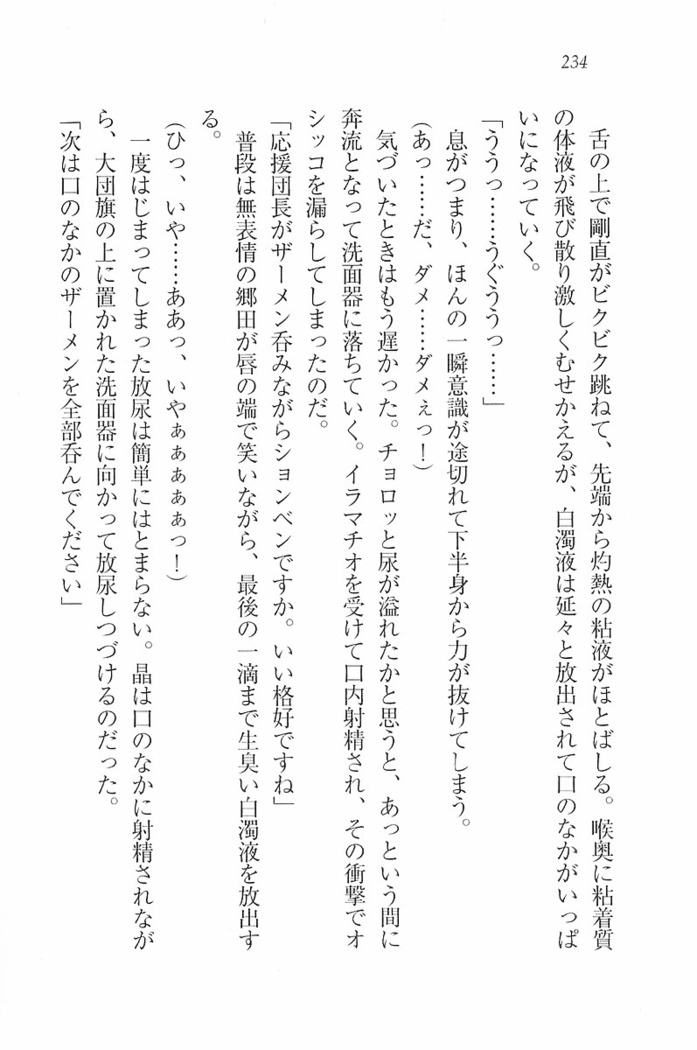 234
舌の上で剛直がビクビク跳ねて、先端から灼熱の粘液がほとばしる。喉奥に粘着質
の体液が飛び散り激しくむせかえるが、白濁液は延々と放出されて口のなかがいっぱ
いになっていく。
「ううっ……うぐううっ……」
息がつまり、ほんの一瞬意識が途切れて下半身から力が抜けてしまう。
(あっ……だ、ダメ……ダメぇっ！)
気づいたときはもう遅かった。チョロッと尿が溢れたかと思うと、あっという間に
奔流となって洗面器に落ちていく。イラマチオを受けて口内射精され、その衝撃でオ
シッコを漏らしてしまったのだ。
「応援団長がザーメン呑みながらションベンですか。いい格好ですね」
普段は無表情の郷田が唇の端で笑いながら、最後の一滴まで生臭い白濁液を放出す
る。
(ひっ、いや……ああっ、いやぁぁぁぁぁっ！)
一度はじまってしまった放尿は簡単にはとまらない。晶は口のなかに射精されなが
ら、大団旗の上に置かれた洗面器に向かって放尿しつづけるのだった。
「次は口のなかのザーメンを全部呑んでください」